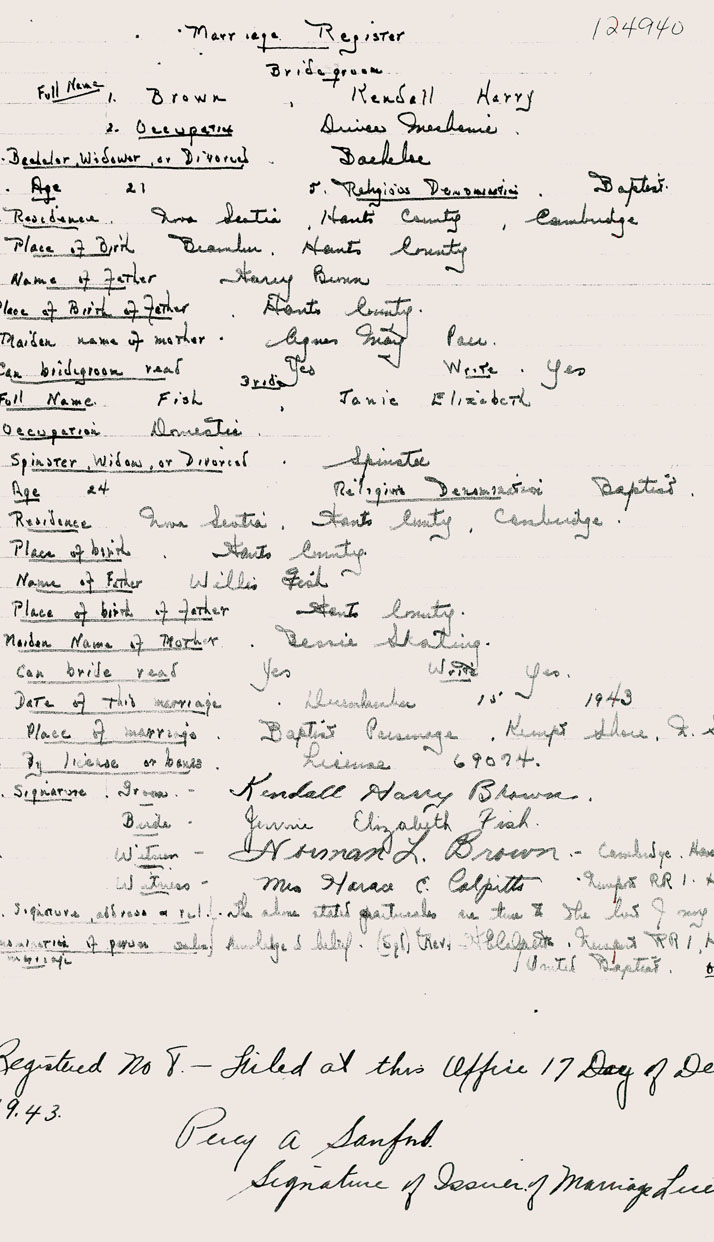 124940
Marriage Register
Bridegroom
Full Name 1. Brown , Kendall Harry
2. Occupation Driver Mechanic .
Bachelor, Widower, or Divorced Bachelor
Age 21 5. Religious Denomination . Baptist.
Residence . Nova Scotia , Hants County , Cambridge
Place of Birth . Hants County
Name of Father Harry Brown
Place of Birth of Father . Hants County.
Maiden name of mother . Agnes May
Can bridegroom read Yes Write . Yes
Bride
Full Name. Fish , Janie Elizabeth
Occupation Domestic .
Spinster, Widow, or Divorced . Spinster
Age 24 Religious Denomination Baptist .
Residence Nova Scotia , Hants County , Cambridge .
Place of birth . Hants County.
Name of Father Willis Fish
Place of birth of Father Hants County.
Maiden Name of Mother . Bessie
Can bride read Yes Write Yes.
Date of this marriage . December 15 1943
Place of marriage . Baptist Parsonage , Kempt Shore, N. S
By license or banns . License 69074.
Signature . Groom. - Kendall Harry Brown.
Bride - Jennie Elizabeth Fish.
Witness - Norman L. Brown. - Cambridge.
Witness - Mrs Horace C. Colpitts . Newport RR 1.
Signature, address . The above stated particulars are true to the best of my
of person knowledge & belief. (Sgd) (Rev) Colpitts . Newport RR 1,
marriage United Baptist.
Registered No 8. - Filed at this Office 17 Day of De
19.43.
Percy A Sanford.
Signature of Issuer of Marriage Lice